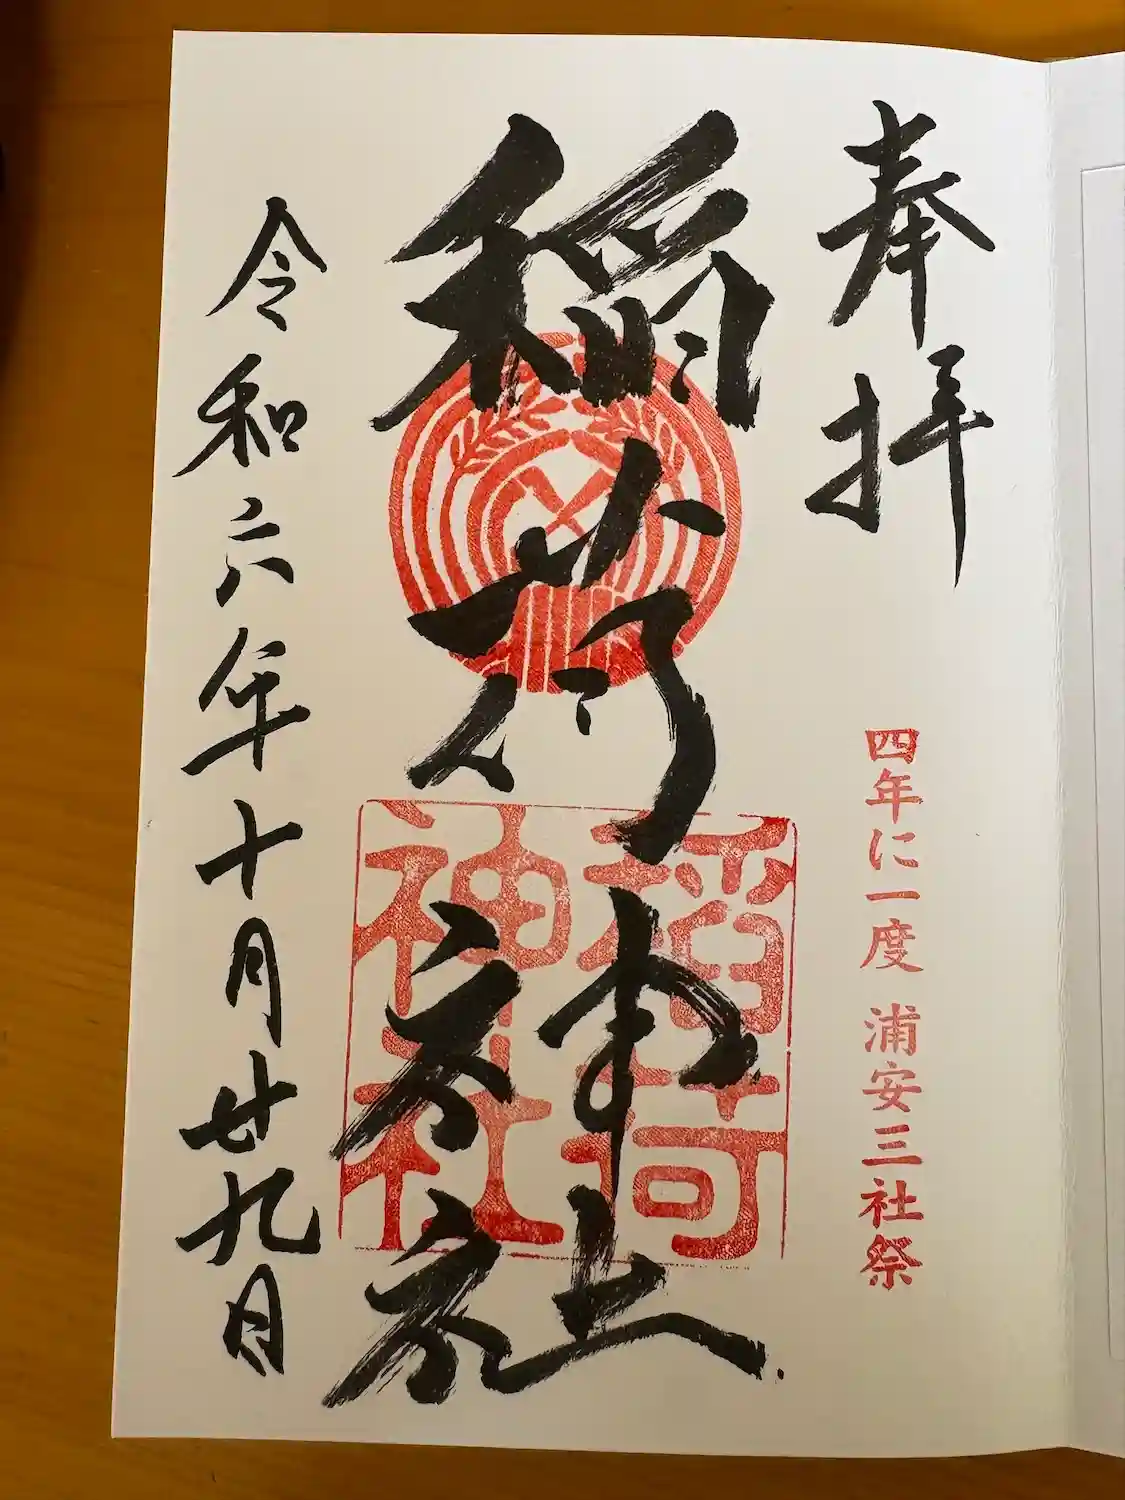 奉拝
四年に一度 浦安三社祭
稲荷神社
稲荷
神社
令和六年十月廿九日